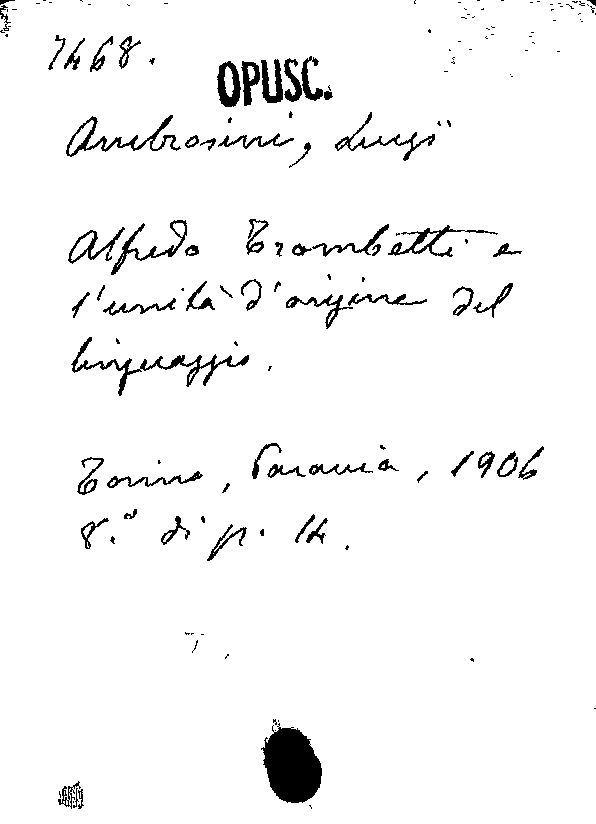 7468.
OPUSC.
Ambrosini, Luigi
Alfredo Trombetti e
l'unità d'origine del
linguaggio.
Torino, Paravia, 1906
8.° di p. 14.